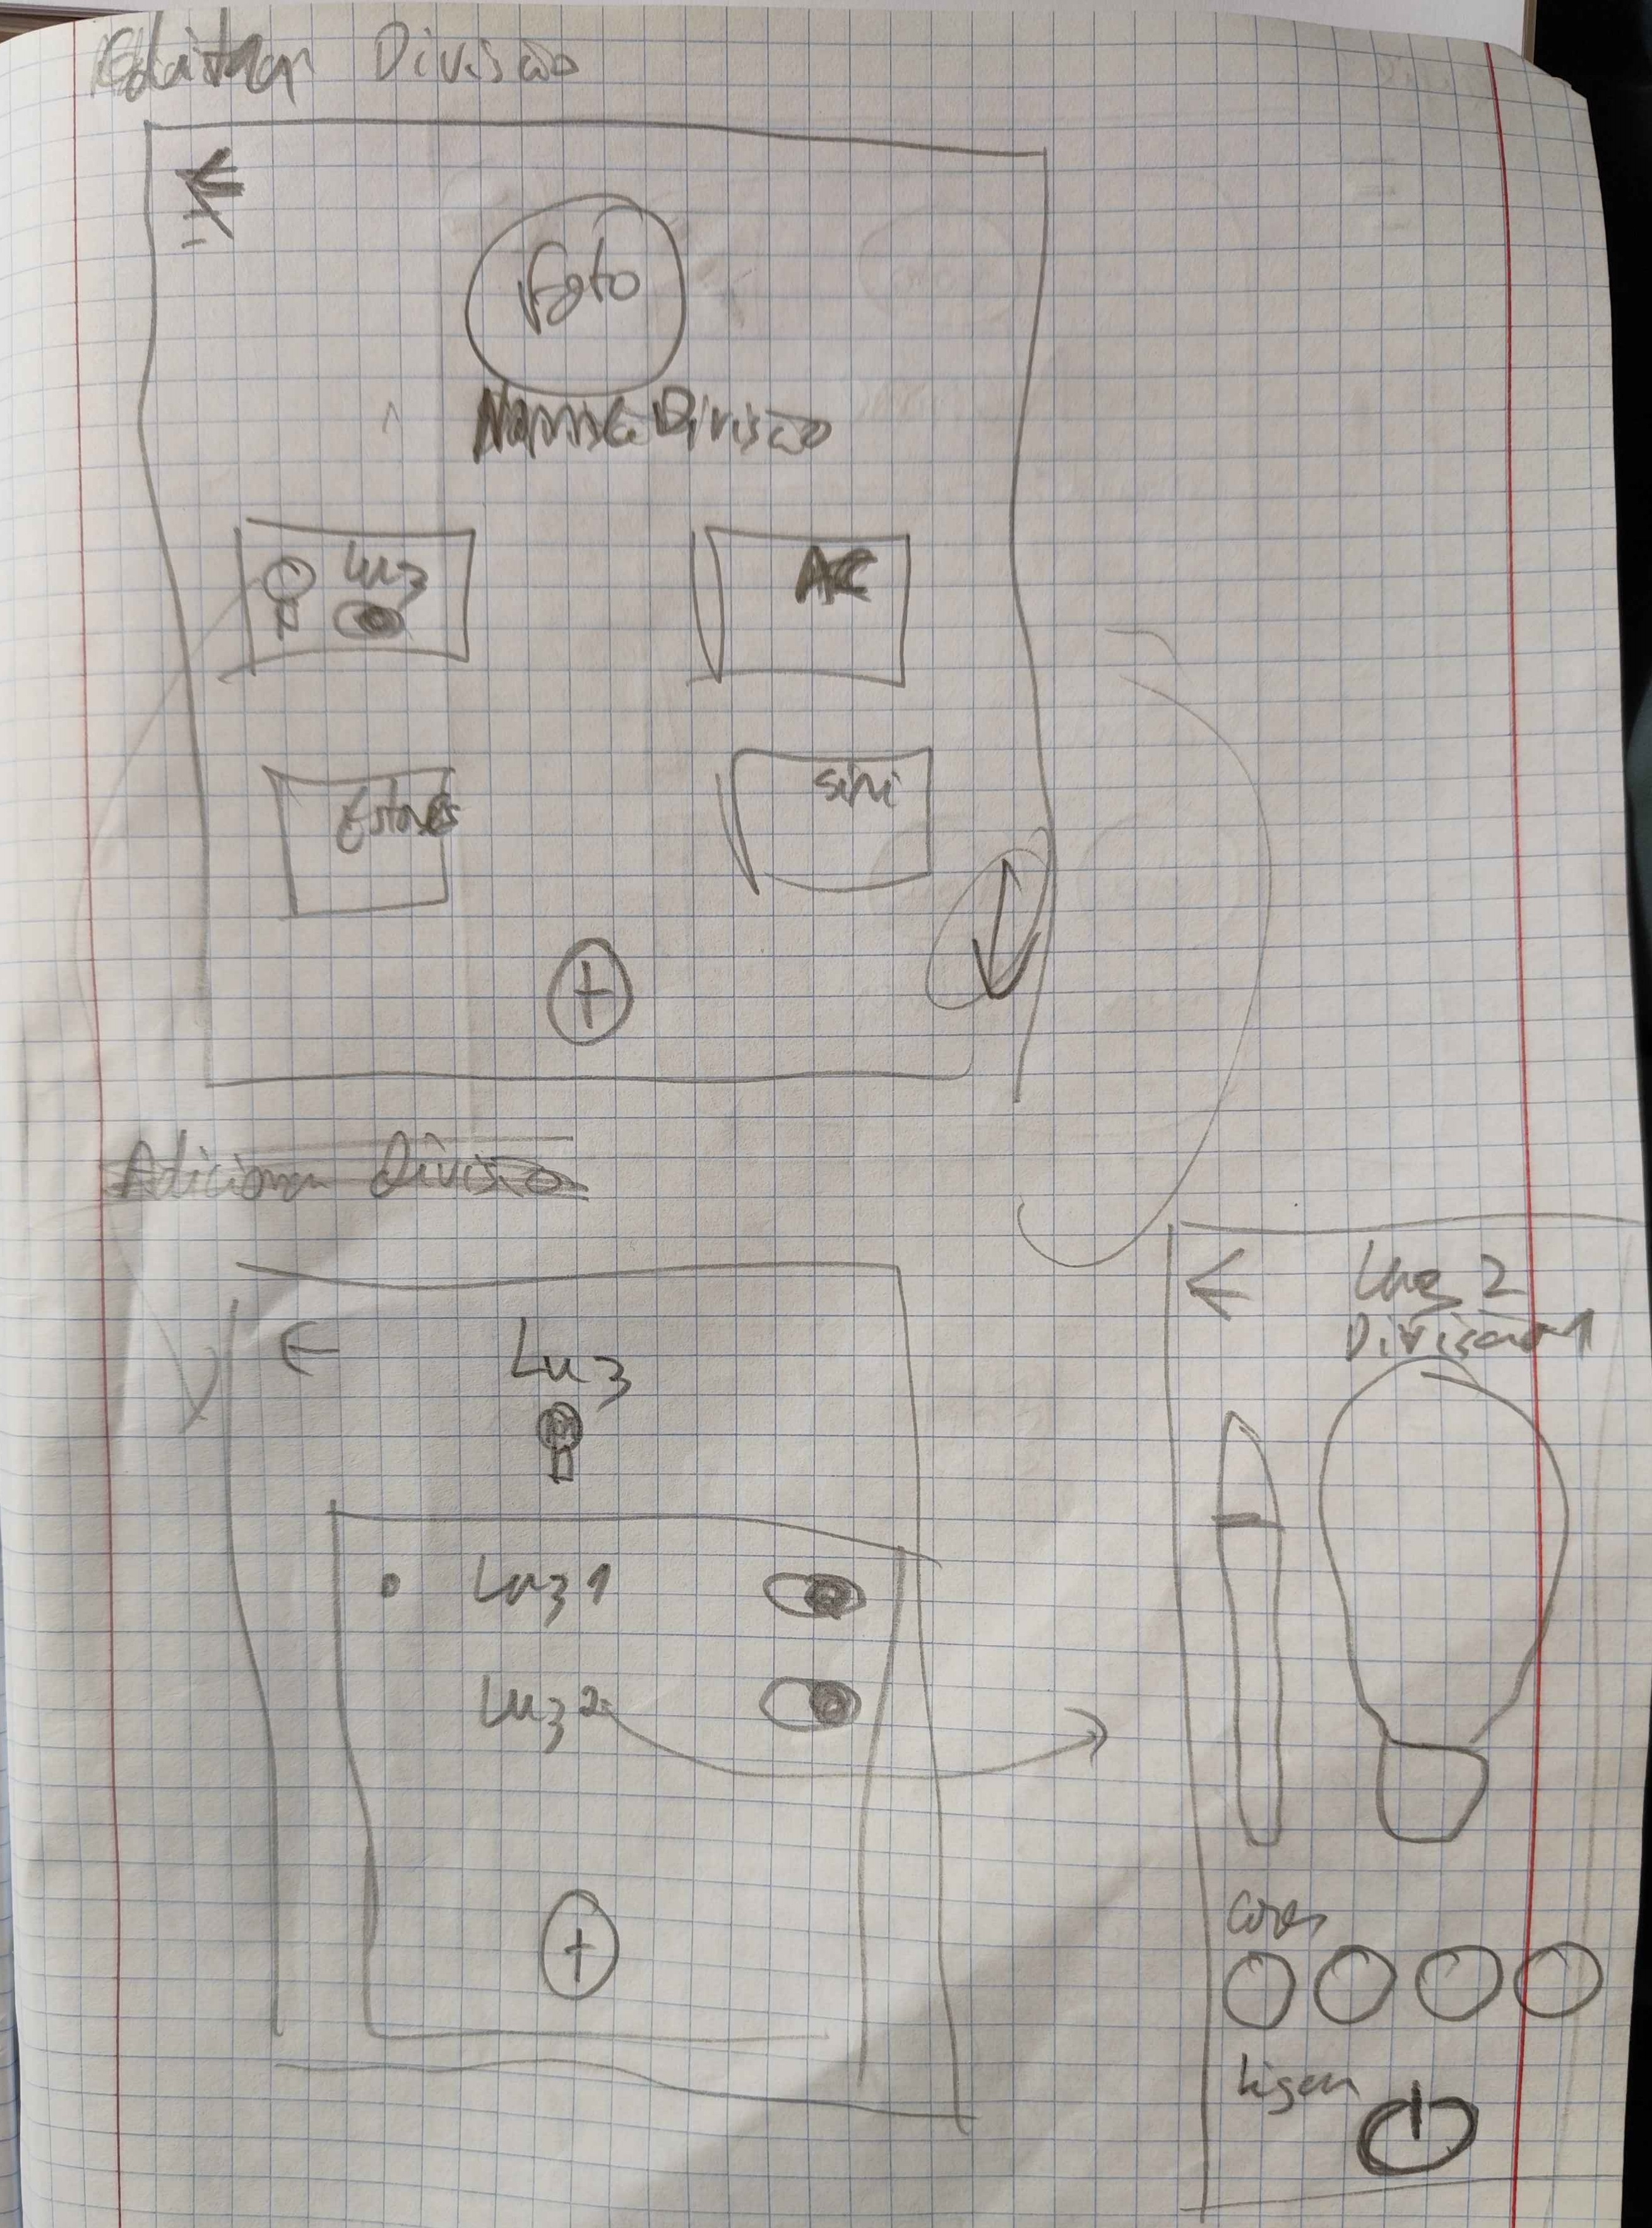 Editar Divisão
Foto
Nome da Divisão
Luz
AC
Estores
Siri
Adicionar Divisão
Luz
Luz 1
Luz 2
Luz 2
Divisão 1
Cores
Ligar